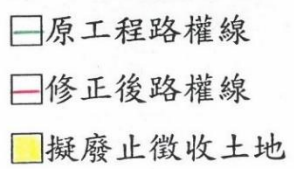 原工程路權線
修正後路權線
擬廢止徵收土地